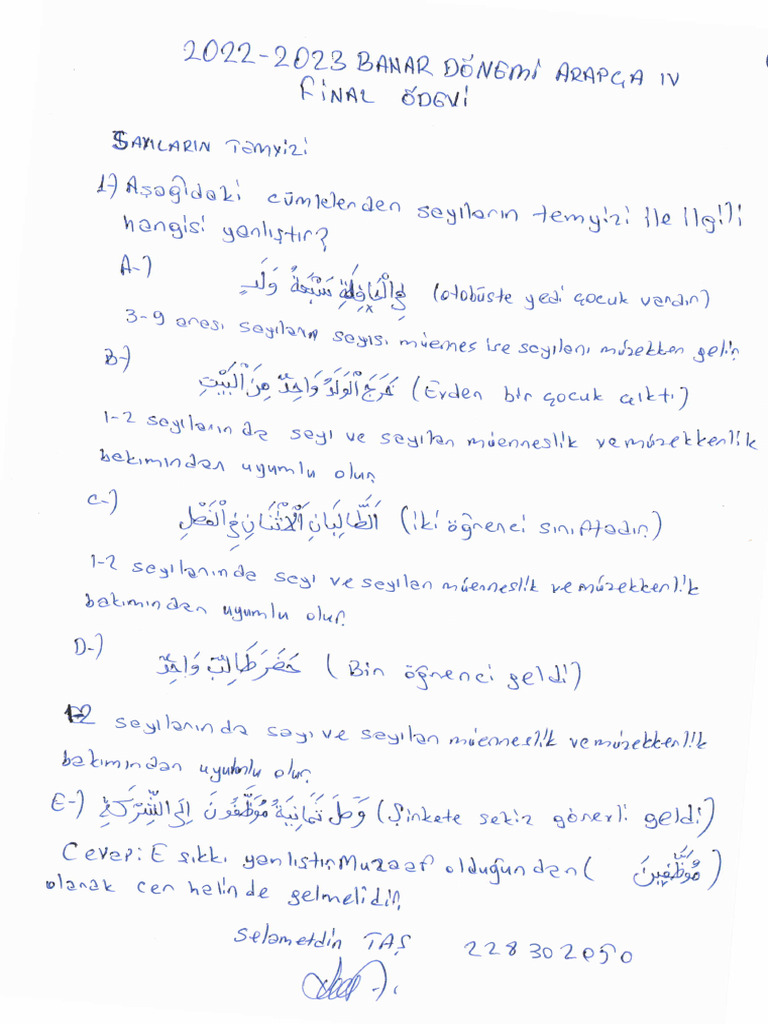 2022-2023 BAHAR DÖNEMİ ARAPÇA IV
FİNAL ÖDEVİ
SAYILARIN TEMYİZİ
1-) Aşağıdaki cümlelerden sayıların temyizi ile ilgili
hangisi yanlıştır?
A-) فِي الْحَافِلَةِ سَبْعَةُ وَلَدٍ (otobüste yedi çocuk vardır)
3-9 arası sayıların sayısı müennes ise sayılanı müzekker gelir.
B-) خَرَجَ الْوَلَدُ وَاحِدٌ مِنَ الْبَيْتِ (Evden bir çocuk çıktı)
1-2 sayılarında sayı ve sayılan müenneslik ve müzekkerlik
bakımından uyumlu olur.
C-) اَلطَّالِبَانِ اَلْاثْنَانِ فِي الْفَصْلِ (iki öğrenci sınıftadır)
1-2 sayılarında sayı ve sayılan müenneslik ve müzekkerlik
bakımından uyumlu olur.
D-) حَضَرَ طَالِبٌ وَاحِدٌ (Bir öğrenci geldi)
1-2 sayılarında sayı ve sayılan müenneslik ve müzekkerlik
bakımından uyumlu olur.
E-) وَصَلَ ثَمَانِيَةُ مُوَظَّفُونَ إِلَى الشِّرْكَةِ (Şirkete sekiz görevli geldi)
Cevap: E şıkkı yanlıştır. Muzaaf olduğundan (مُوَظَّفِينَ)
olarak cer halinde gelmelidir.
Selamettin TAŞ 228302050